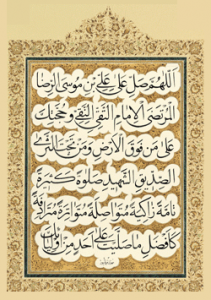 اللهم صل علی علی بن موسی الرضا
المرتضی الإمام التقی النقی و حجتک
علی من فوق الأرض و من تحت الثری
الصدیق الشهید صلوة کثیرة
تامة زاکیة متواصلة متواترة مترادفة
کافضل ما صلیت علی احد من اولیائک